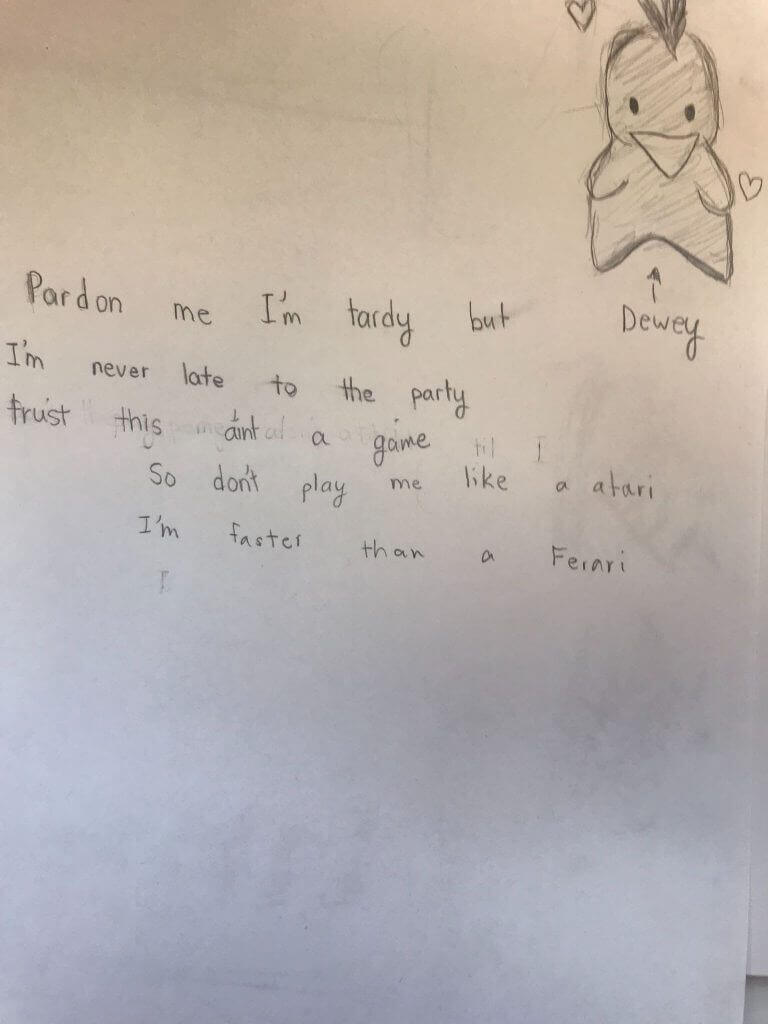 Dewey
Pardon me I'm tardy but
I'm never late to the party
trust this aint a game til I
So don't play me like a atari
I'm faster than a Ferari
I